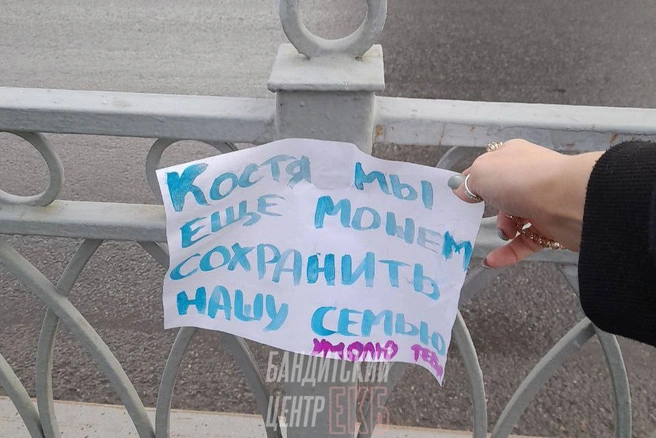 Костя мы
ЕЩЕ МОЖЕМ
СОХРАНИТЬ
НАШУ СЕМЬЮ
УМОЛЮ ТЕБЯ
БАНДИТСКИЙ
ЦЕНТР ЕКБ